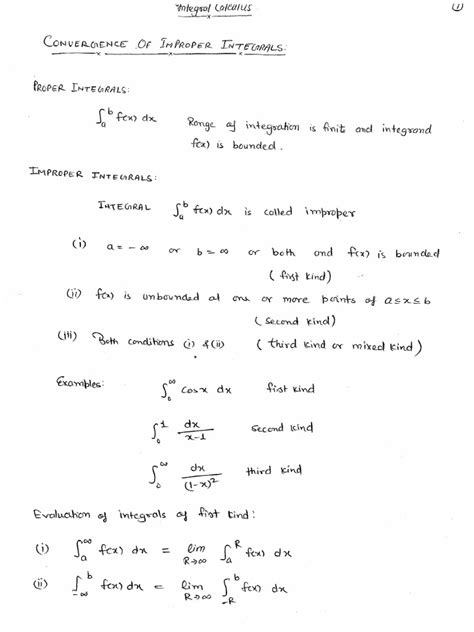 Integral Calculus
①
CONVERGENCE OF IMPROPER INTEGRALS:
PROPER INTEGRALS:
∫_a^b f(x) dx Range of integration is finit and integrand
f(x) is bounded.
IMPROPER INTEGRALS:
INTEGRAL ∫_a^b f(x) dx is called improper
(i) a = -∞ or b = ∞ or both and f(x) is bounded
(first kind)
(ii) f(x) is unbounded at one or more points of a≤x≤b
(second kind)
(iii) Both conditions (i) & (ii) (third kind or mixed kind)
Examples: ∫_0^∞ cosx dx first kind
∫_0^1 dx/(x-1) second kind
∫_0^∞ dx/(1-x)² third kind
Evaluation of integrals of first kind:
(i) ∫_a^∞ f(x) dx = lim_{R→∞} ∫_a^R f(x) dx
(ii) ∫_{-∞}^b f(x) dx = lim_{R→∞} ∫_{-R}^b f(x) dx